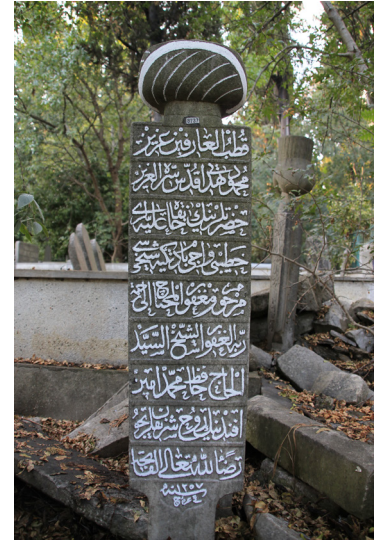 قطب العارفين عزيز
محمود هدائى قدس سره العزيز
حضرتلرينك خانقاه عليه لرى
خطيبى
مرحوم و مغفور المحتاج الى
ربه الغفور الشيخ السيد
الحاج حافظ محمد امين
افندينك روح شريفلريچون
رضاء لله تعالى الفاتحه
سنه